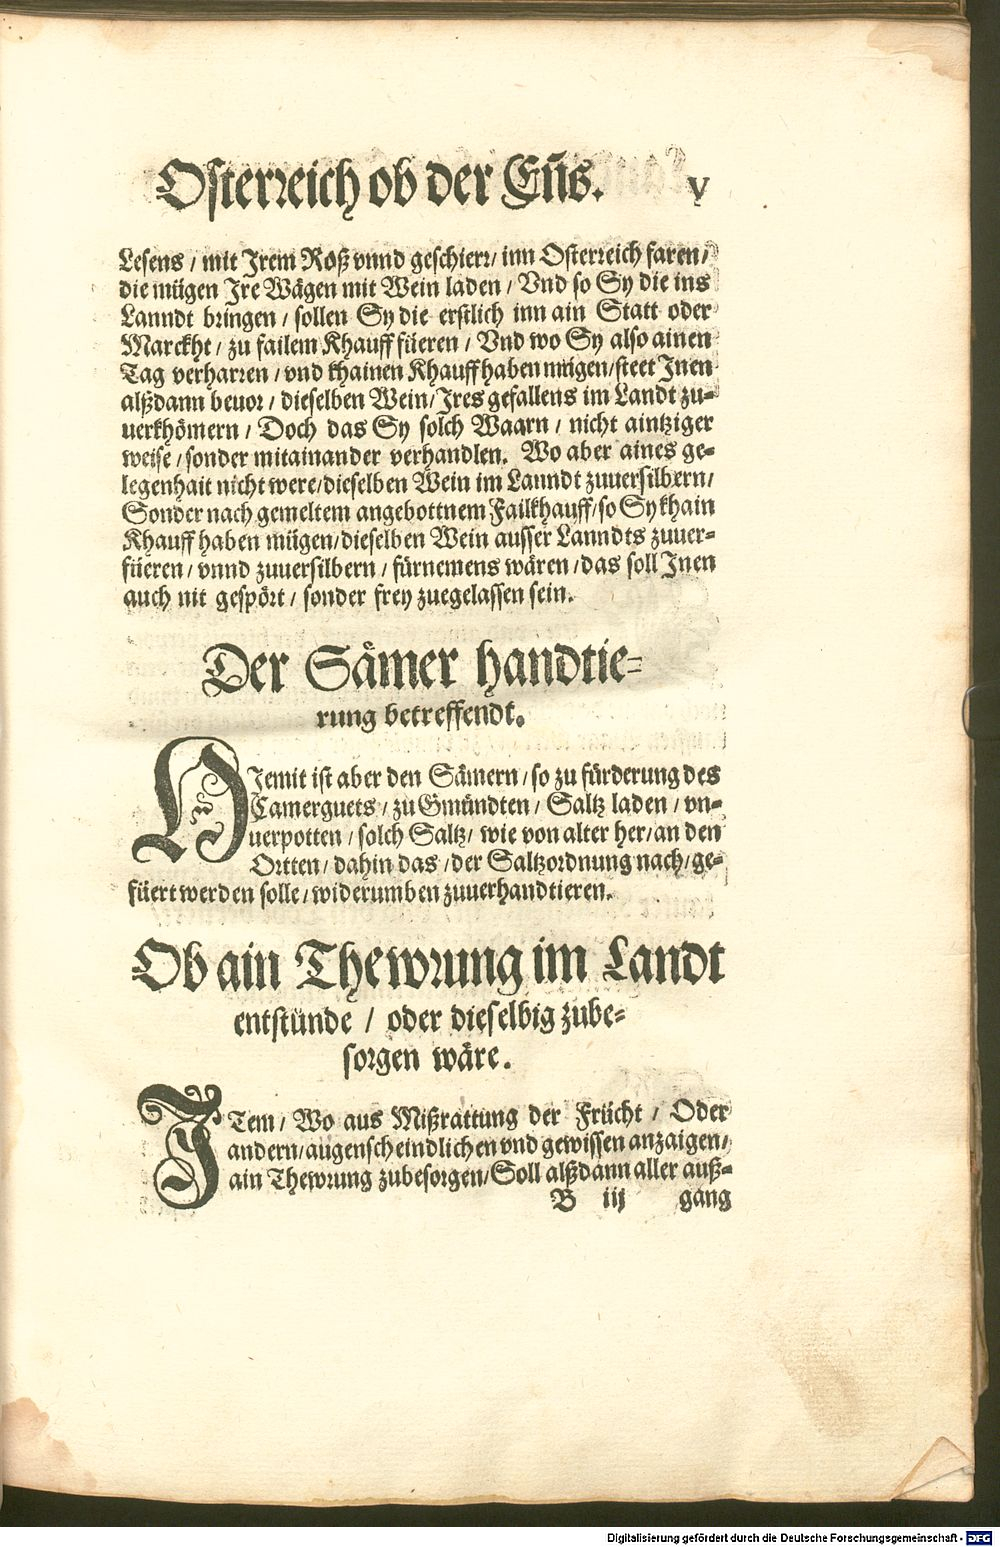 Osterreich ob der Eñs. v
Lesens / mit Jrem Roß vnnd geschierr / inn Osterreich faren /
die mügen Jre Wägen mit Wein laden / Vnd so Sy die ins
Lanndt bringen / sollen Sy die erstlich inn ain Statt oder
Marckht / zu failem Khauff füeren / Vnd wo Sy also ainen
Tag verharren / vnd khainen Khauff haben mügen / steet Jnen
alßdann beuor / dieselben Wein / Jres gefallens im Landt zu-
uerkhömern / Doch das Sy solch Waarn / nicht aintziger
weise / sonder mitainander verhandlen. Wo aber aines ge-
legenhait nicht were / dieselben Wein im Lanndt zuuersilbern /
Sonder nach gemeltem angebottnem Failkhauff / so Sy khain
Khauff haben mügen / dieselben Wein ausser Lanndts zuuer-
füeren / vnnd zuuersilbern / fürnemens wären / das soll Jnen
auch nit gespört / sonder frey zuegelassen sein.
Der Sämer handtie-
rung betreffendt.
HJemit ist aber den Sämern / so zu fürderung des
Camerguets / zu Gmündten / Saltz laden / vn-
uerpotten / solch Saltz / wie von alter her / an den
Ortten / dahin das / der Saltzordnung nach / ge-
füert werden solle / widerumben zuuerhandtieren.
Ob ain Thewrung im Landt
entstünde / oder dieselbig zube-
sorgen wäre.
JTem / Wo aus Mißrattung der Frücht / Oder
andern / augenscheindlichen vnd gewissen anzaigen /
ain Thewrung zubesorgen / Soll alßdann aller auß-
B iij gang
Digitalisierung gefördert durch die Deutsche Forschungsgemeinschaft - DFG